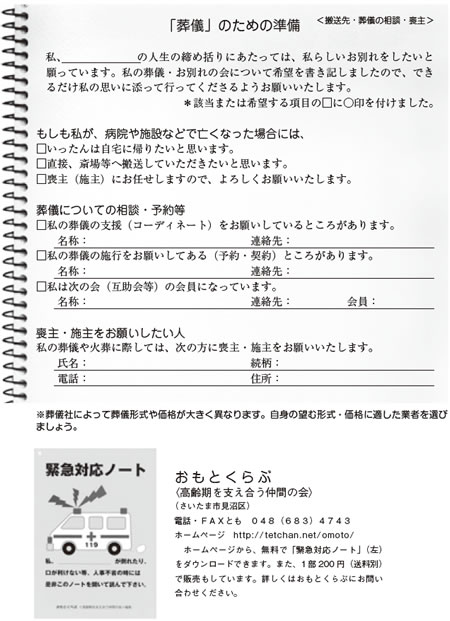 「葬儀」のための準備 ＜搬送先・葬儀の相談・喪主＞
私、＿＿＿＿＿＿＿の人生の締め括りにあたっては、私らしいお別れをしたいと
願っています。私の葬儀・お別れの会について希望を書き記しましたので、でき
るだけ私の思いに添って行ってくださるようお願いいたします。
＊該当または希望する項目の□に○印を付けました。
もしも私が、病院や施設などで亡くなった場合には、
□いったんは自宅に帰りたいと思います。
□直接、斎場等へ搬送していただきたいと思います。
□喪主（施主）にお任せしますので、よろしくお願いいたします。
葬儀についての相談・予約等
□私の葬儀の支援（コーディネート）をお願いしているところがあります。
名称： 連絡先：
□私の葬儀の施行をお願いしてある（予約・契約）ところがあります。
名称： 連絡先：
□私は次の会（互助会等）の会員になっています。
名称： 連絡先： 会員：
喪主・施主をお願いしたい人
私の葬儀や火葬に際しては、次の方に喪主・施主をお願いいたします。
氏名： 続柄：
電話： 住所：
※葬儀社によって葬儀形式や価格が大きく異なります。自身の望む形式・価格に適した業者を選び
ましょう。
緊急対応ノート
119
私、 が倒れたり、
口が利けない等、人事不省の時には
是非このノートを開いて読んで下さい。
おもとくらぶ
〈高齢期を支え合う仲間の会〉
（さいたま市見沼区）
電話・ＦＡＸとも ０４８（６８３）４７４３
ホームページ http://tetchan.net/omoto/
ホームページから、無料で「緊急対応ノート」（左）
をダウンロードできます。また、１部200円（送料別）
で販売もしています。詳しくはおもとくらぶにお問い
合わせください。